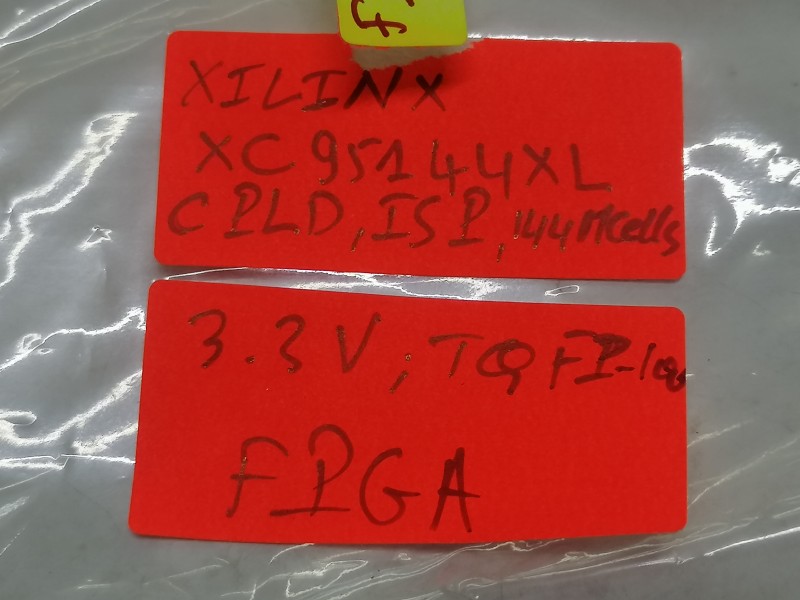 XILINX
XC95144XL
CPLD, ISP, 144MCells
3.3V; TQFP-100
FPGA